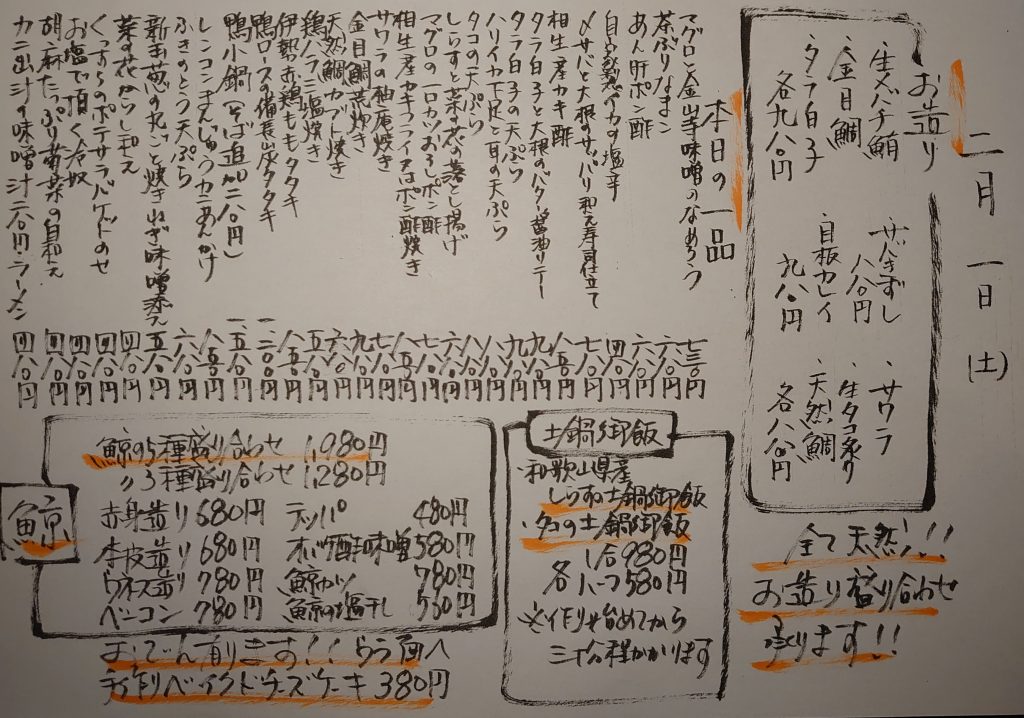 二月一日(土)
お造り
・生本ズバチ鮪
・金目鯛
・タラ白子
各九八〇円
・サバきずし
八八〇円
・自板カレイ
九八〇円
・サワラ
・生タコ炙り
・天然鯛
各八八〇円
全て天然!!
お造り盛り合わせ
承ります!!
本日の一品
マグロと金山寺味噌のなめろう 七三〇円
茶ぶりなまこ 六八〇円
あん肝ポン酢 六八〇円
自家製イカの塩辛 四八〇円
〆サバと大根のサッパリ和え寿司仕立て 七八〇円
相生産カキ酢 八五〇円
タラ白子と大根のバター醤油ソテー 九八〇円
タラ白子の天ぷら 九八〇円
ハリイカ下足と耳の天ぷら 八八〇円
タコの天ぷら 八八〇円
しらすと菜の花の落とし揚げ 六八〇円
マグロの一口カツおろしポン酢 七八〇円
相生産カキフライ又はポン酢焼き 八五〇円
サワラの柚庵焼き 七八〇円
金目鯛荒炊き 九八〇円
天然鯛カブト焼き 六八〇円
鶏ハラミ塩焼き 五八〇円
伊勢赤鶏ももタタキ 八五〇円
鴨ロースの備長炭タタキ 一、二八〇円
鴨小鍋(そば追加二八〇円) 一、五八〇円
レンコンまんじゅうカニあんかけ 八五〇円
ふきのとう天ぷら 六八〇円
新玉葱の丸ごと焼きねぎ味噌添え 五八〇円
菜の花からし和え 四八〇円
くっすらのポテサラバゲットのせ 四八〇円
お塩で頂く冷奴 四八〇円
胡麻たっぷり菊菜の白和え 四八〇円
カニ出汁の味噌汁二八〇円・ラーメン 四八〇円
土鍋御飯
・和歌山県産
しらすの土鍋御飯
・タコの土鍋御飯
1合980円
各ハーフ580円
※作り始めてから
三十分程かかります
鯨
鯨の5種盛り合わせ 1,980円
〃3種盛り合わせ 1,280円
赤身造り 680円 テッパ 480円
本皮造り 680円 オバケ酢味噌 580円
ウネス造り 780円 鯨カツ 780円
ベーコン 780円 鯨の塩干し 580円
おでん有ります!!うら面へ
手作りベイクドチーズケーキ 380円